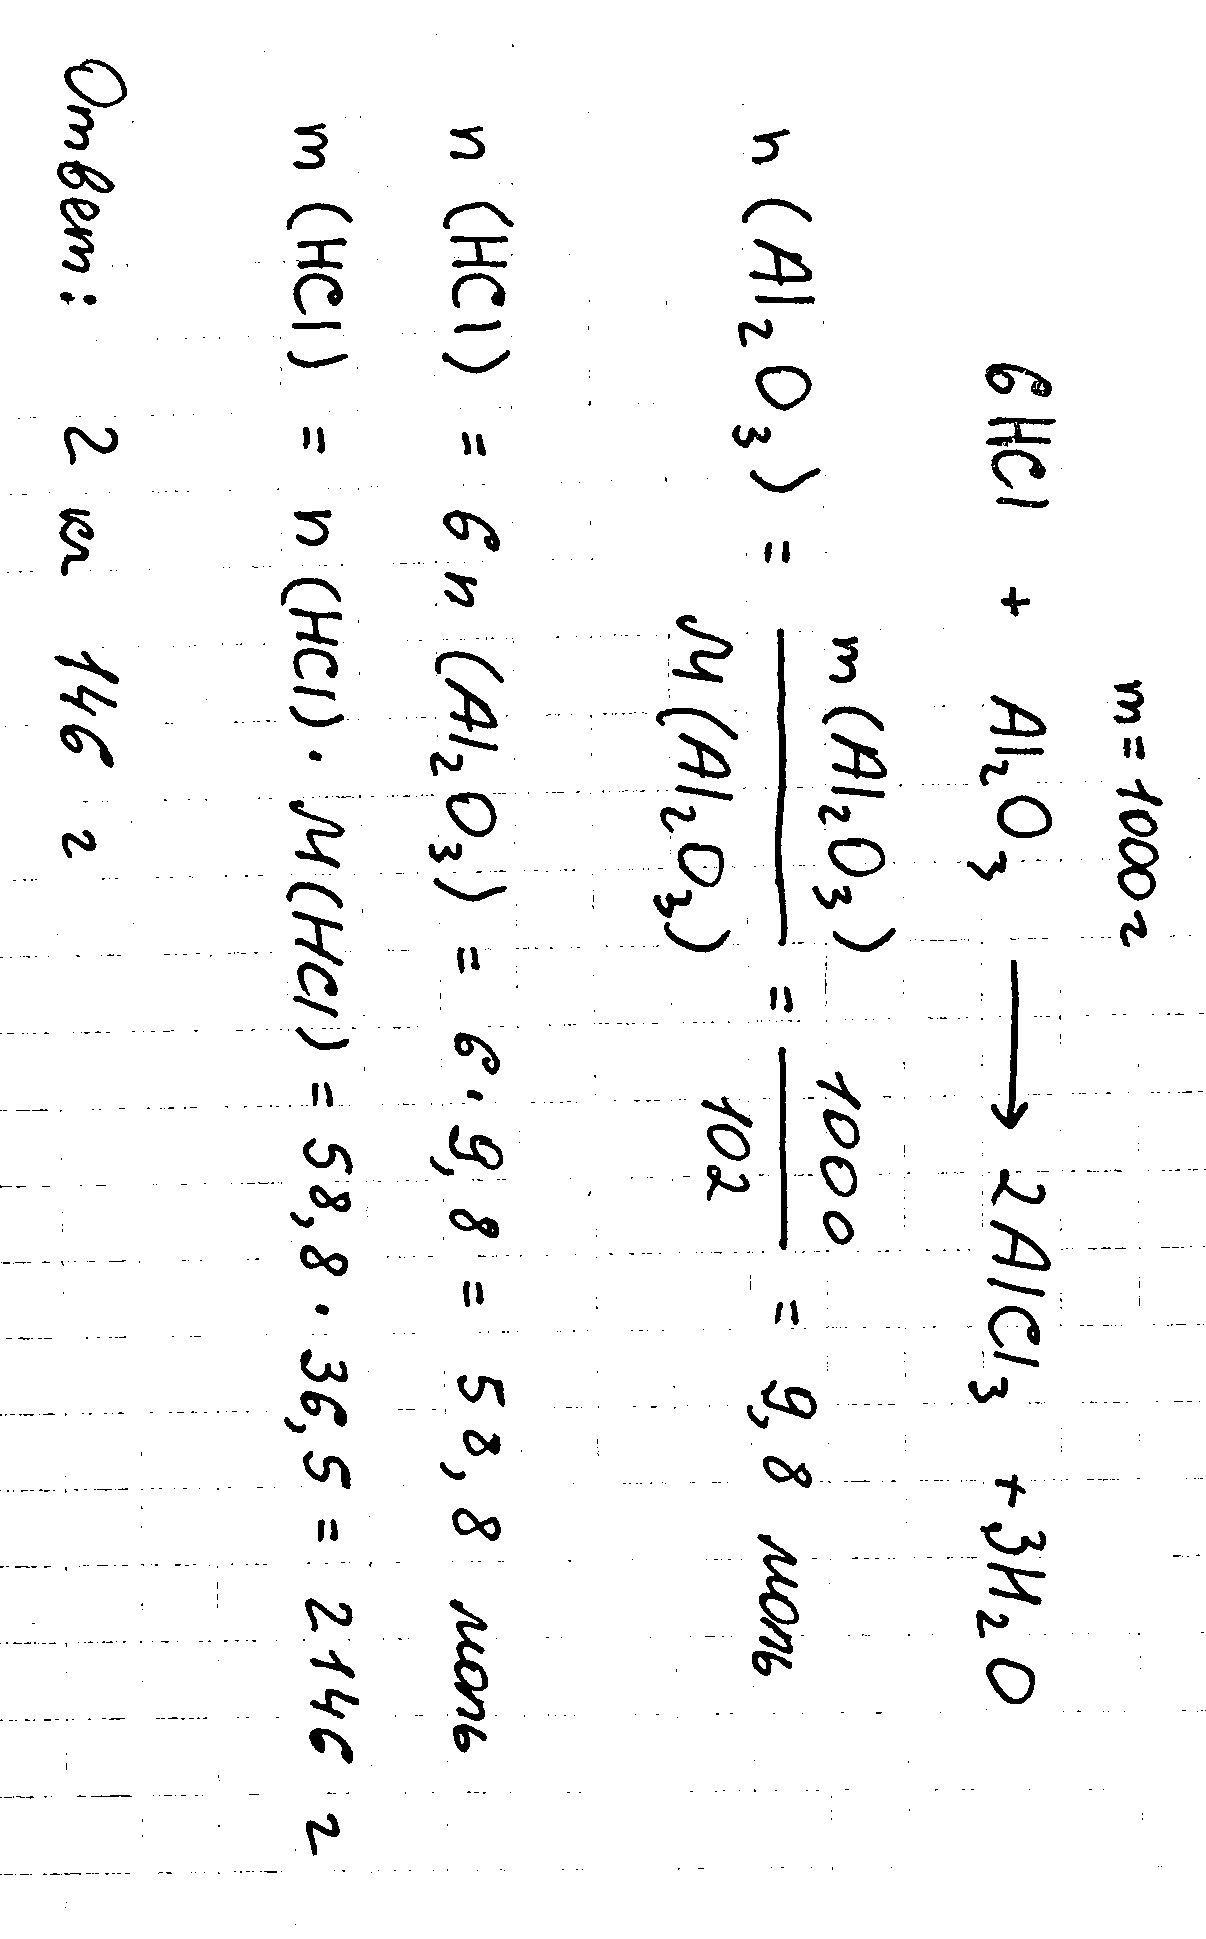 m=1000г
6HCl + Al₂O₃ ⟶ 2AlCl₃ + 3H₂O
n(Al₂O₃) = m(Al₂O₃) / M(Al₂O₃) = 1000 / 102 = 9,8 моль
n(HCl) = 6n(Al₂O₃) = 6·9,8 = 58,8 моль
m(HCl) = n(HCl)·M(HCl) = 58,8·36,5 = 2146 г
Ответ: 2 кг 146 г